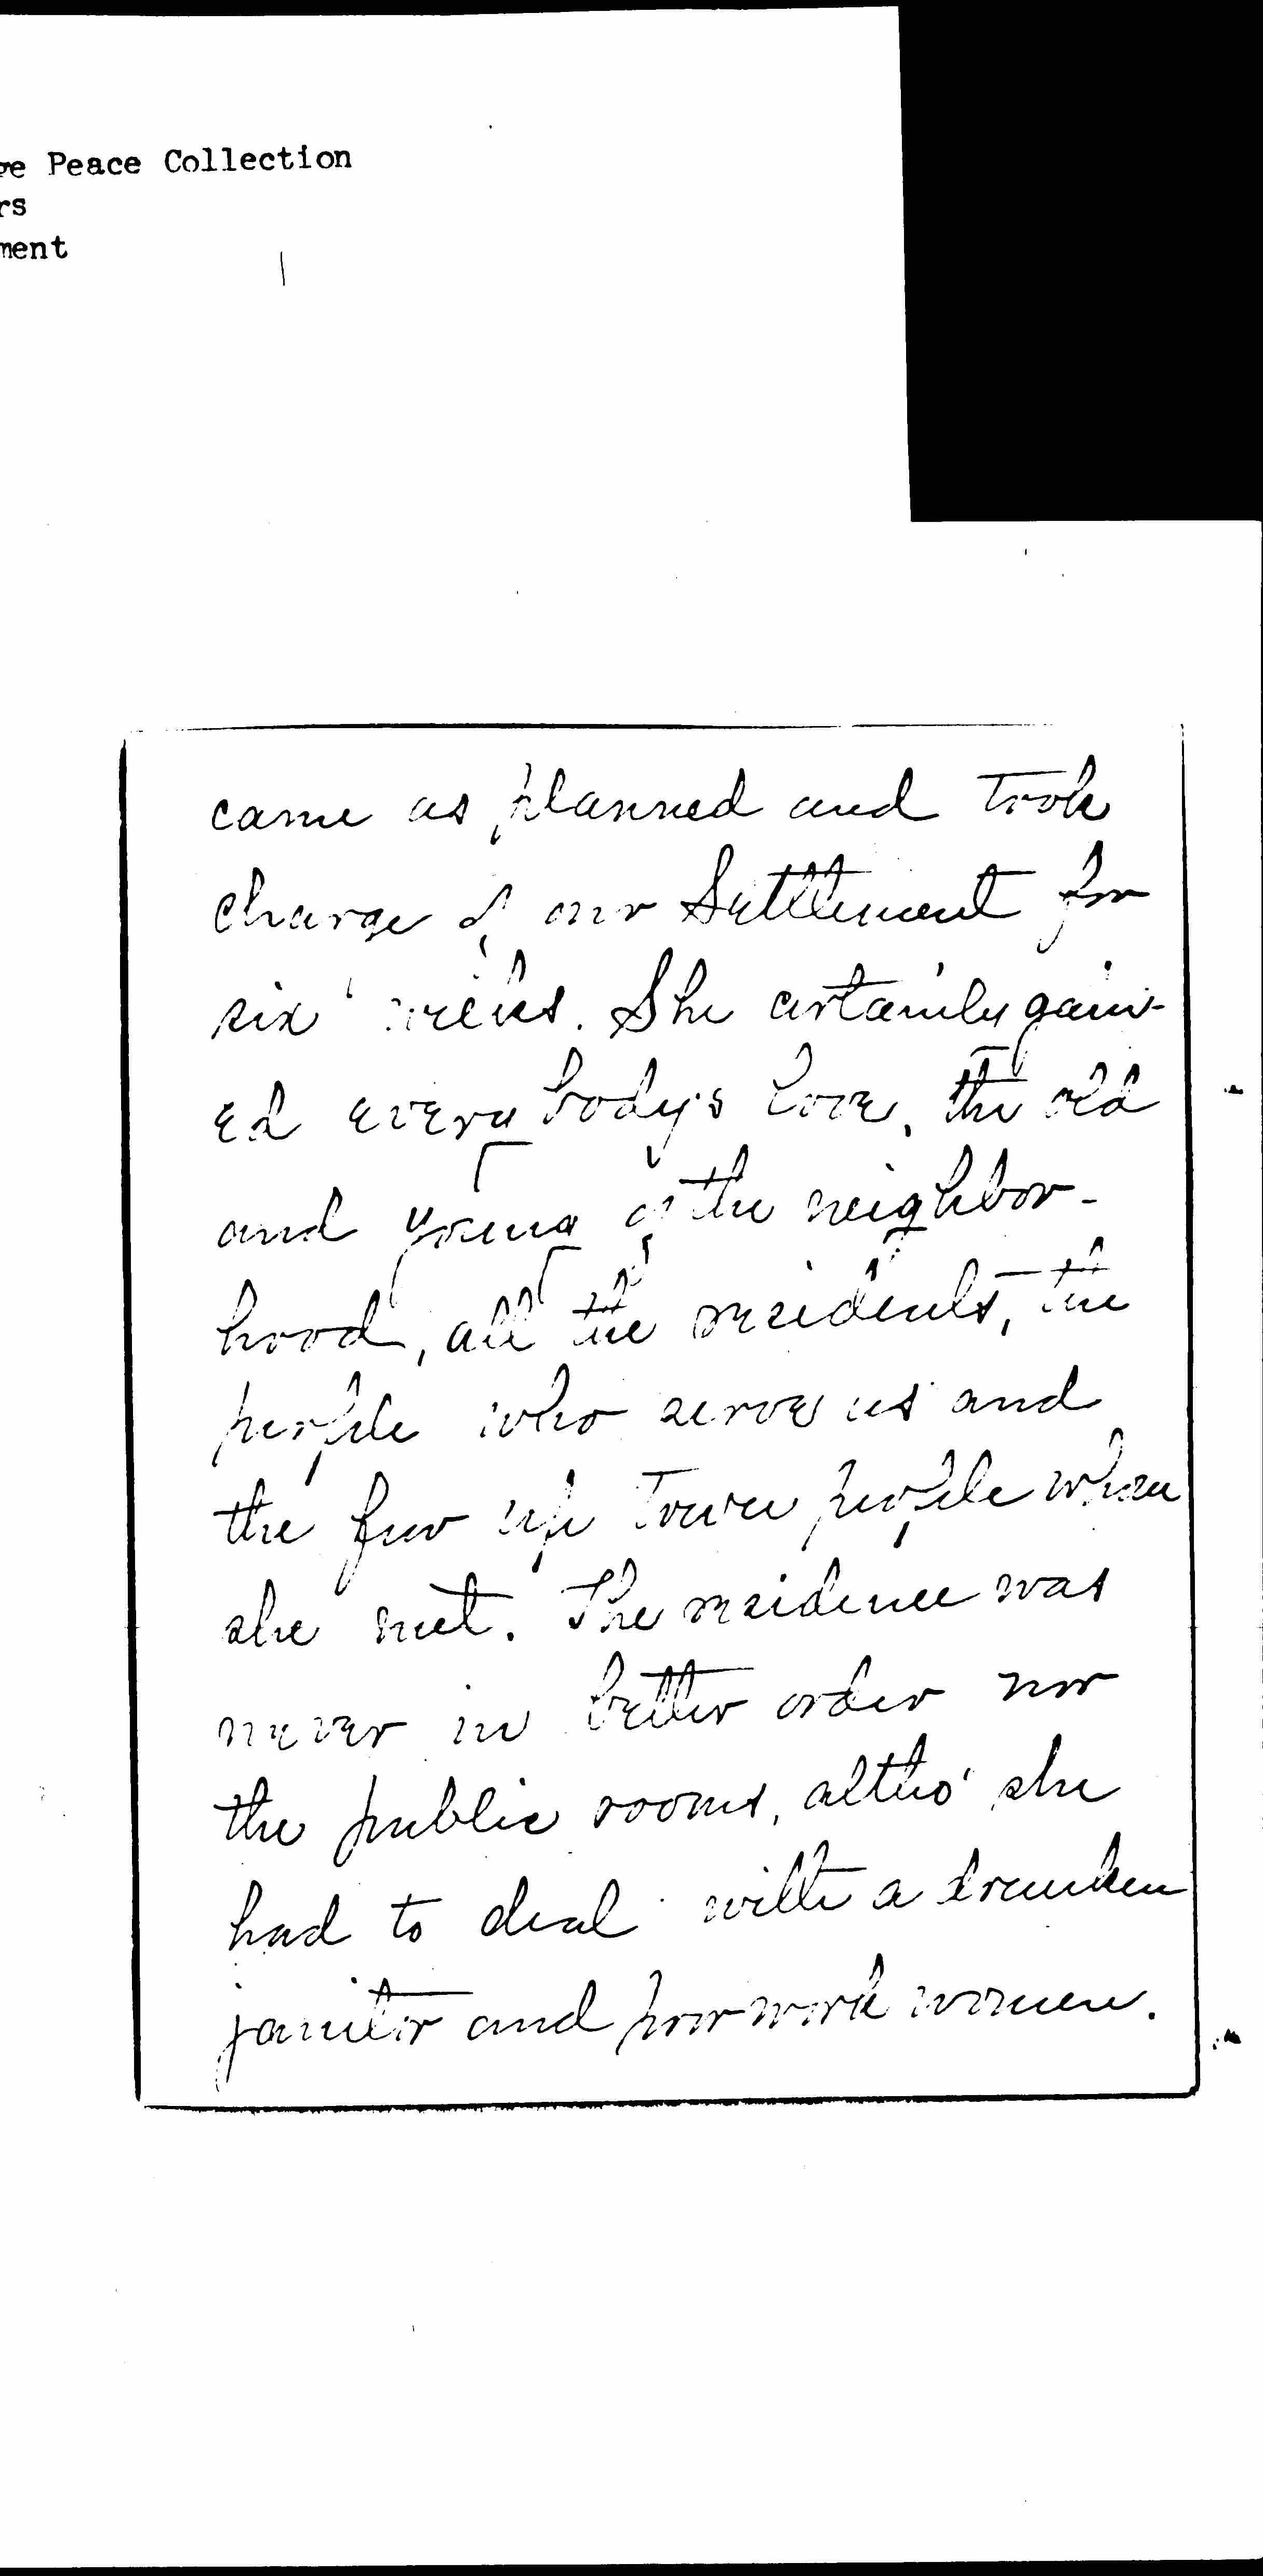 ge Peace Collection
rs
ment
came as planned and took
charge of our Settlement for
six weeks. She certainly gain-
ed every body's love, the old
and young of the neighbor-
hood, all the residents, the
people who serve us and
the few up town people whom
she met. The residence was
never in better order nor
the public rooms, altho' she
had to deal with a drunken
janitor and poor work women.